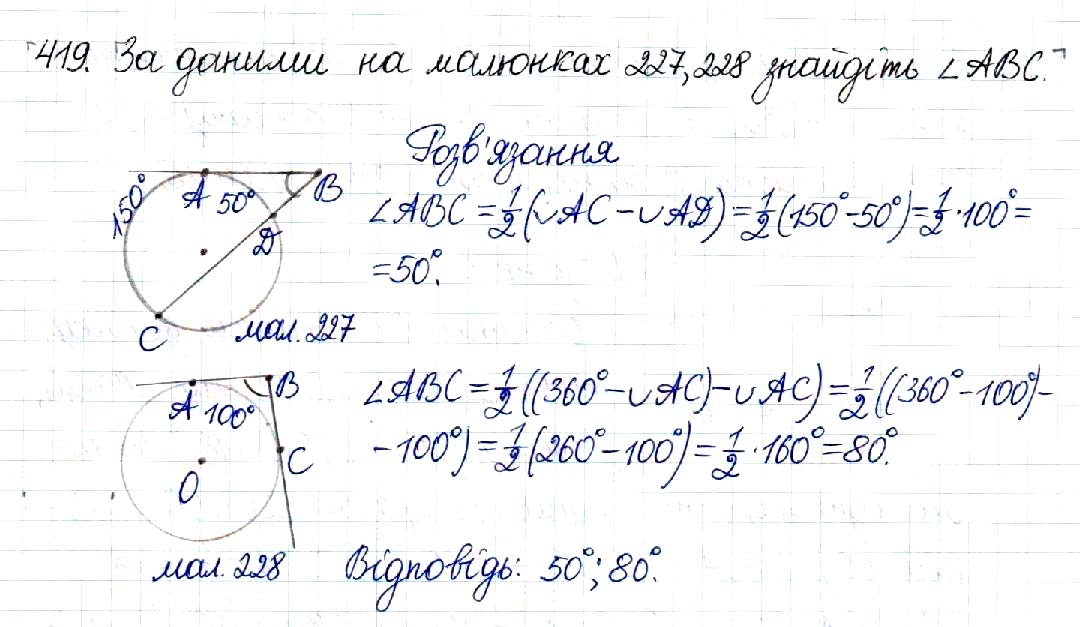 419. За даними на малюнках 227, 228 знайдіть ∠ABC.
Розв'язання
150° A 50° B
D
C
мал. 227
∠ABC = 1/2(∪AC − ∪AD) = 1/2(150° − 50°) = 1/2 · 100° =
= 50°.
A 100° B
C
O
мал. 228
∠ABC = 1/2((360° − ∪AC) − ∪AC) = 1/2((360° − 100°) −
− 100°) = 1/2(260° − 100°) = 1/2 · 160° = 80°.
Відповідь: 50°; 80°.